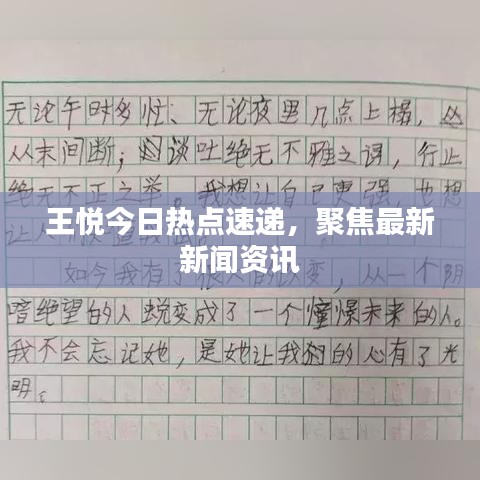 无论午时多忙、无论夜里几点上榻，丛
从未间断；谈吐绝无不雅之词，行止
绝无不正之举。我想让自己更强，也想
让人
王悦今日热点速递，聚焦最新
新闻资讯
如今我有了很大的改变，从一个阴
暗绝望的人蜕变成了一个憧憬未来的人。
我不会忘记她，是她让我的心有了光
明。